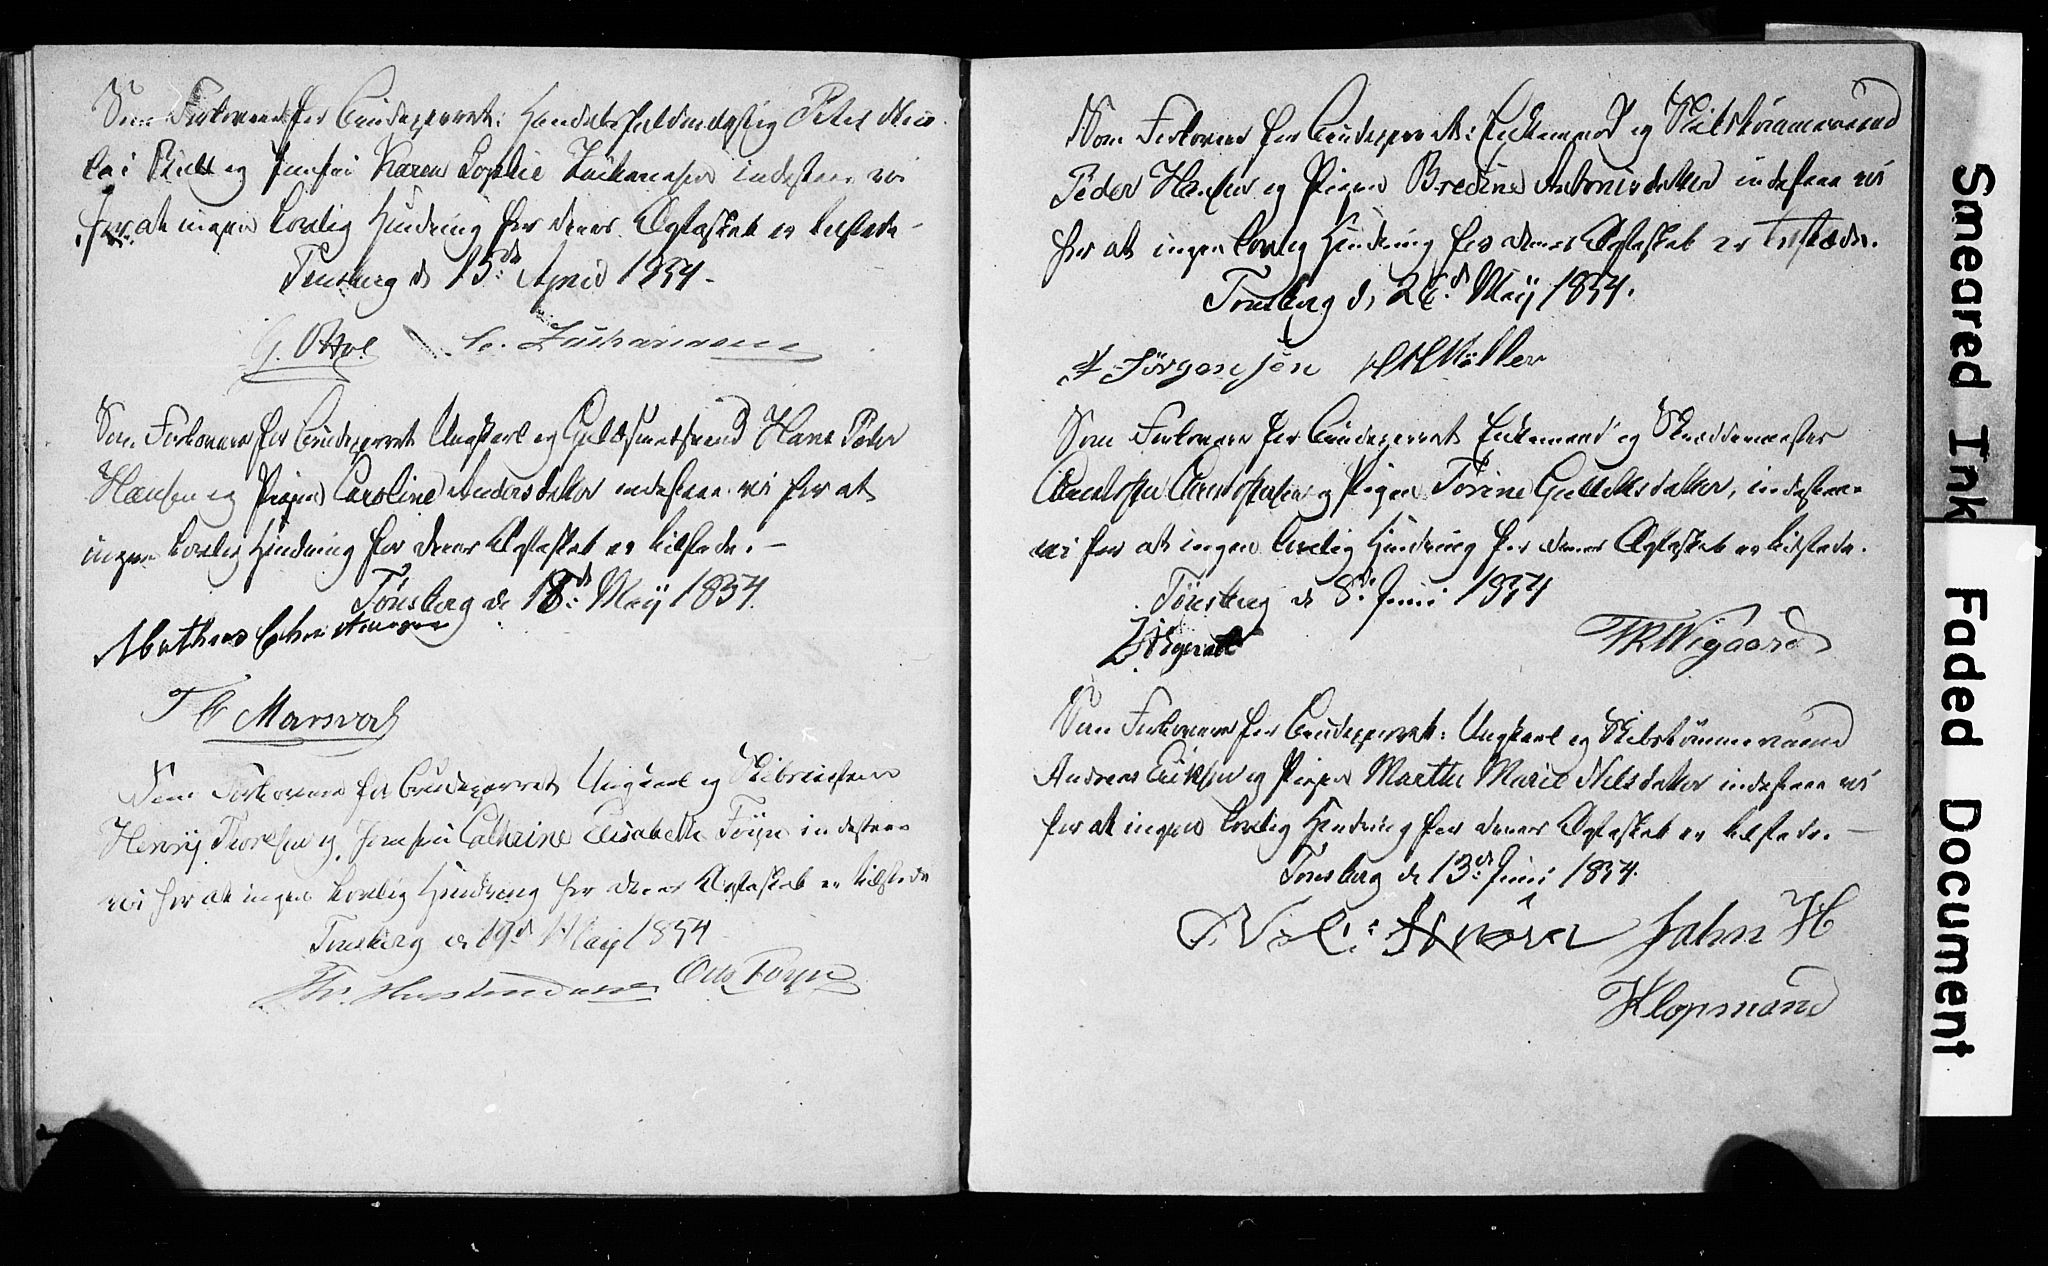 Som Forlovere for Brudeparret: Handelsfuldmægtig Peter Nico-
lai Bull og Jomfrue Karen Sophie Zachariasen indestaae vi
for, at ingen lovlig Hindring for deres Ægteskab er tilstede –
Tønsberg d 15de April 1854.
G. Ottve Zachariassen
Som Forlovere for Brudeparret Ungkarl og Guldsmedsvend Hans Peter
Hansen og Pigen Caroline Andersdatter indestaae vi for at
ingen lovlig Hindring for deres Ægteskab er tilstede. –
Tønsberg de 18de Maij 1854.
Mathias
T C Marsvad
Som Forlovere for Brudeparret Ungkarl og
Henrij og Jomfrue Cathrine Elisabeth Føyn indestaae
vi for at ingen lovlig Hindring for deres Ægteskab er tilstede
Tønsberg de 19d Maij 1854
Otto Føyn
Som Forlovere for Brudeparret: Enkemand og Skibstømmermand
Peder Hansen og Pigen Bredine Antonisdatter indestaae vi
for at ingen lovlig Hindring for deres Ægteskab er tilstæde.
Tønsberg d, 26d Maij 1854.
A Jörgensen HHMöller
Som Forlovere for Brudeparret Enkemand og Skræddermester
og Pigen Torine Gulliksdatter, indestaae
vi for at ingen lovlig Hindring for deres Ægteskab er tilstede.
Tönsberg d 8de Juni 1854
Wigaard
Som Forlovere for Brudeparret: Ungkarl og Skibstömmermand
Andreas Eriksen og Pigen Marthe Marie Nilsdatter indestaae vi
for at ingen lovlig Hindring for deres Ægteskab er tilstede. –
Tønsberg de 13de Juni 1854.
Jahn H
Klopmand
Smeared Ink
Faded Document